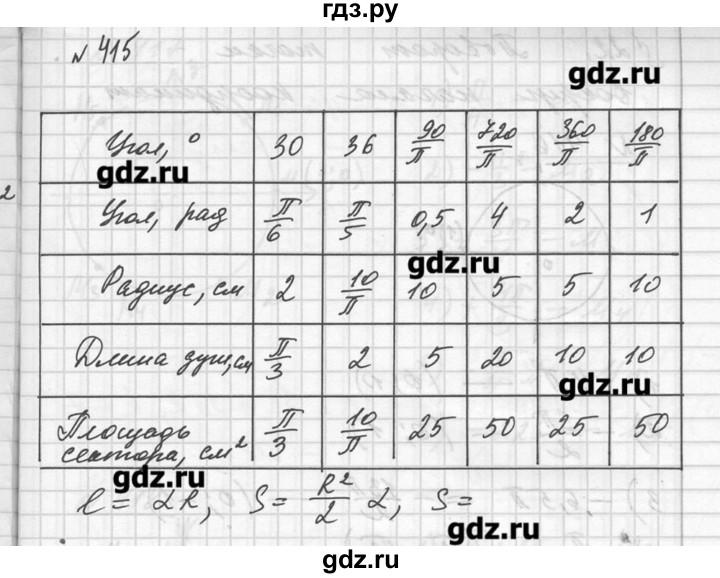 гдз.ру
№ 415
gdz.ru
Угол, ° 30 36 90/π 720/π 360/π 180/π
gdz.ru
Угол, рад π/6 π/5 0,5 4 2 1
gdz.ru
Радиус, см 2 10/π 10 5 5 10
Длина дуги, см π/3 2 5 20 10 10
gdz.ru
Площадь сектора, см² π/3 10/π 25 50 25 50
gdz.ru
l = αR, S = R²/2 α, S =
gdz.ru
gdz.ru